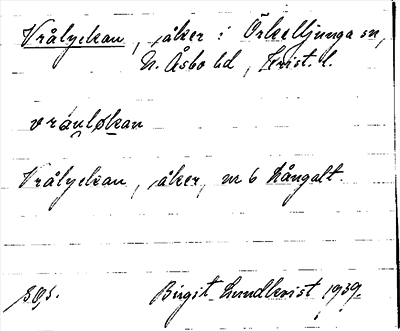 Vrålyckan, åker i Örkelljunga sn,
N. Åsbo hd, Krist. l.
vråuløkan
Vrålyckan, åker, nr 6 Hångalt.
Birgit Lundkvist 1939.